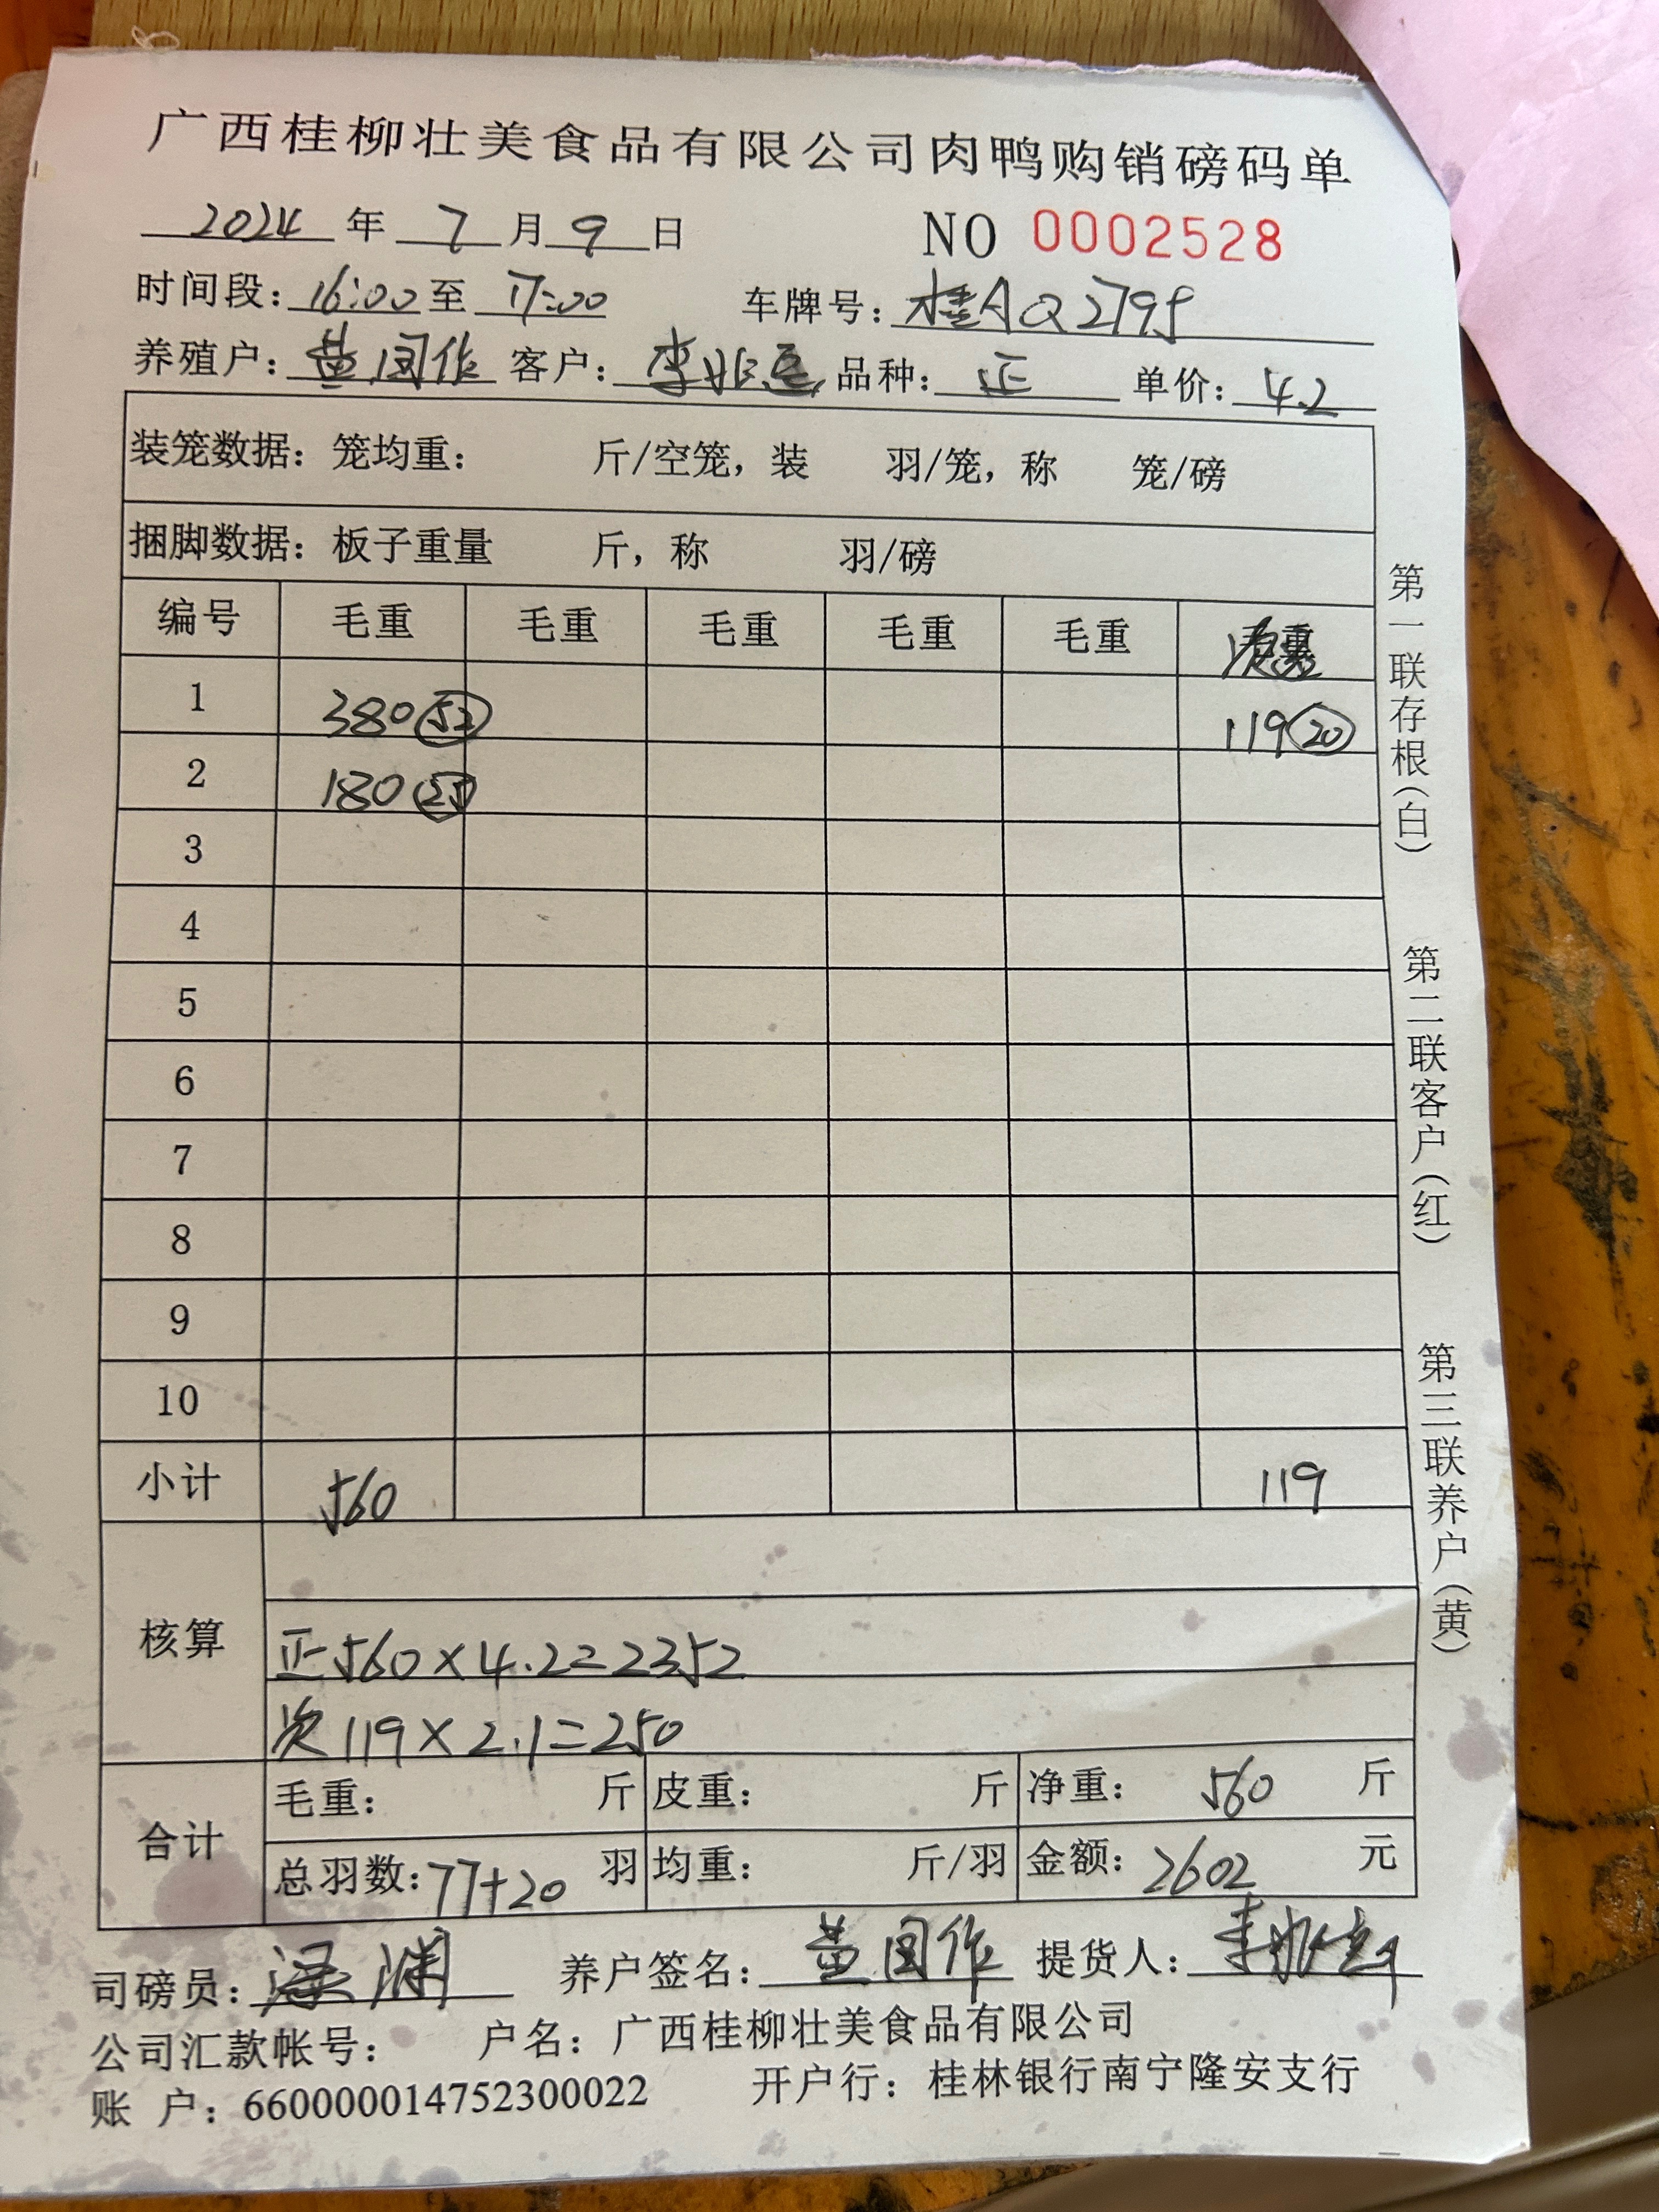 广西桂柳壮美食品有限公司肉鸭购销磅码单
2024 年 7 月 9 日 NO 0002528
时间段: 16:00 至 17:00 车牌号: 桂AQ2795
养殖户: 黄国作 客户: 李 品种: 正 单价: 4.2
装笼数据: 笼均重: 斤/空笼, 装 羽/笼, 称 笼/磅
捆脚数据: 板子重量 斤, 称 羽/磅
编号 毛重 毛重 毛重 毛重 毛重
1 380 52 119 20
2 180 25
3
4
5
6
7
8
9
10
小计 560 119
核算
正560×4.2=2352
次119×2.1=250
合计 毛重: 斤 皮重: 斤 净重: 560 斤
总羽数: 77+20 羽 均重: 斤/羽 金额: 2602 元
司磅员: 养户签名: 黄国作 提货人: 李
公司汇款帐号: 户名: 广西桂柳壮美食品有限公司
账 户: 660000014752300022 开户行: 桂林银行南宁隆安支行
第一联存根(白)
第二联客户(红)
第三联养户(黄)